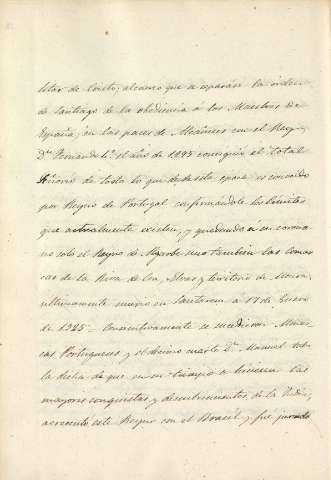 litar de Cristo, alcanzó que se separase la órden
de Santiago de la obediencia á los Maestres de
España; en las paces de Alcañices con el Rey
Dn. Fernando 4º. el año de 1295 consiguió el total
Señorio de todo lo que desde esta epoca es conocido
por Reyno de Portugal confirmándole los limites
que actualmente existen, y quedando en su corona
no solo el Reyno de Algarbe sino tambien las Comar
cas de la Riva de Coa, Serpa y territorio de Moura,
ultimamente murió en Santarem a 17 de Enero
de 1325. Consecutivamente se sucedieron Monar
cas Portugueses, y el decimo cuarto Dn. Manuel tubo
la dicha de que en su tiempo se hiciesen las
mayores conquistas, y descubrimientos de la India,
acreciento este Reyno con el Brasil, y fué jurado